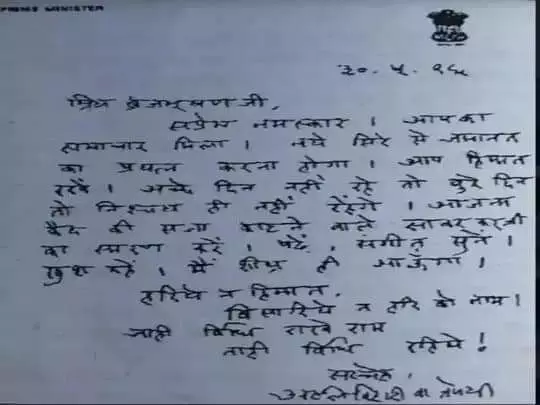 PRIME MINISTER
३०. ५. ९६
प्रिय ब्रजभूषण जी,
सप्रेम नमस्कार । आपका
समाचार मिला । नये सिरे से जमानत
का प्रयत्न करना होगा । आप हिम्मत
रखें । अच्छे दिन नहीं रहे तो बुरे दिन
तो निश्चय ही नहीं रहेंगे । आजन्म
कैद की सजा काटने वाले सावरकरजी
का स्मरण करें । पढ़ें, संगीत सुनें ।
खुश रहें । मैं शीघ्र ही आऊँगा ।
हारिये न हिम्मत,
बिसारिये न हरि को नाम ।
जाही विधि राखे राम
ताही विधि रहिये !
सस्नेह,
अटल बिहारी वाजपेयी